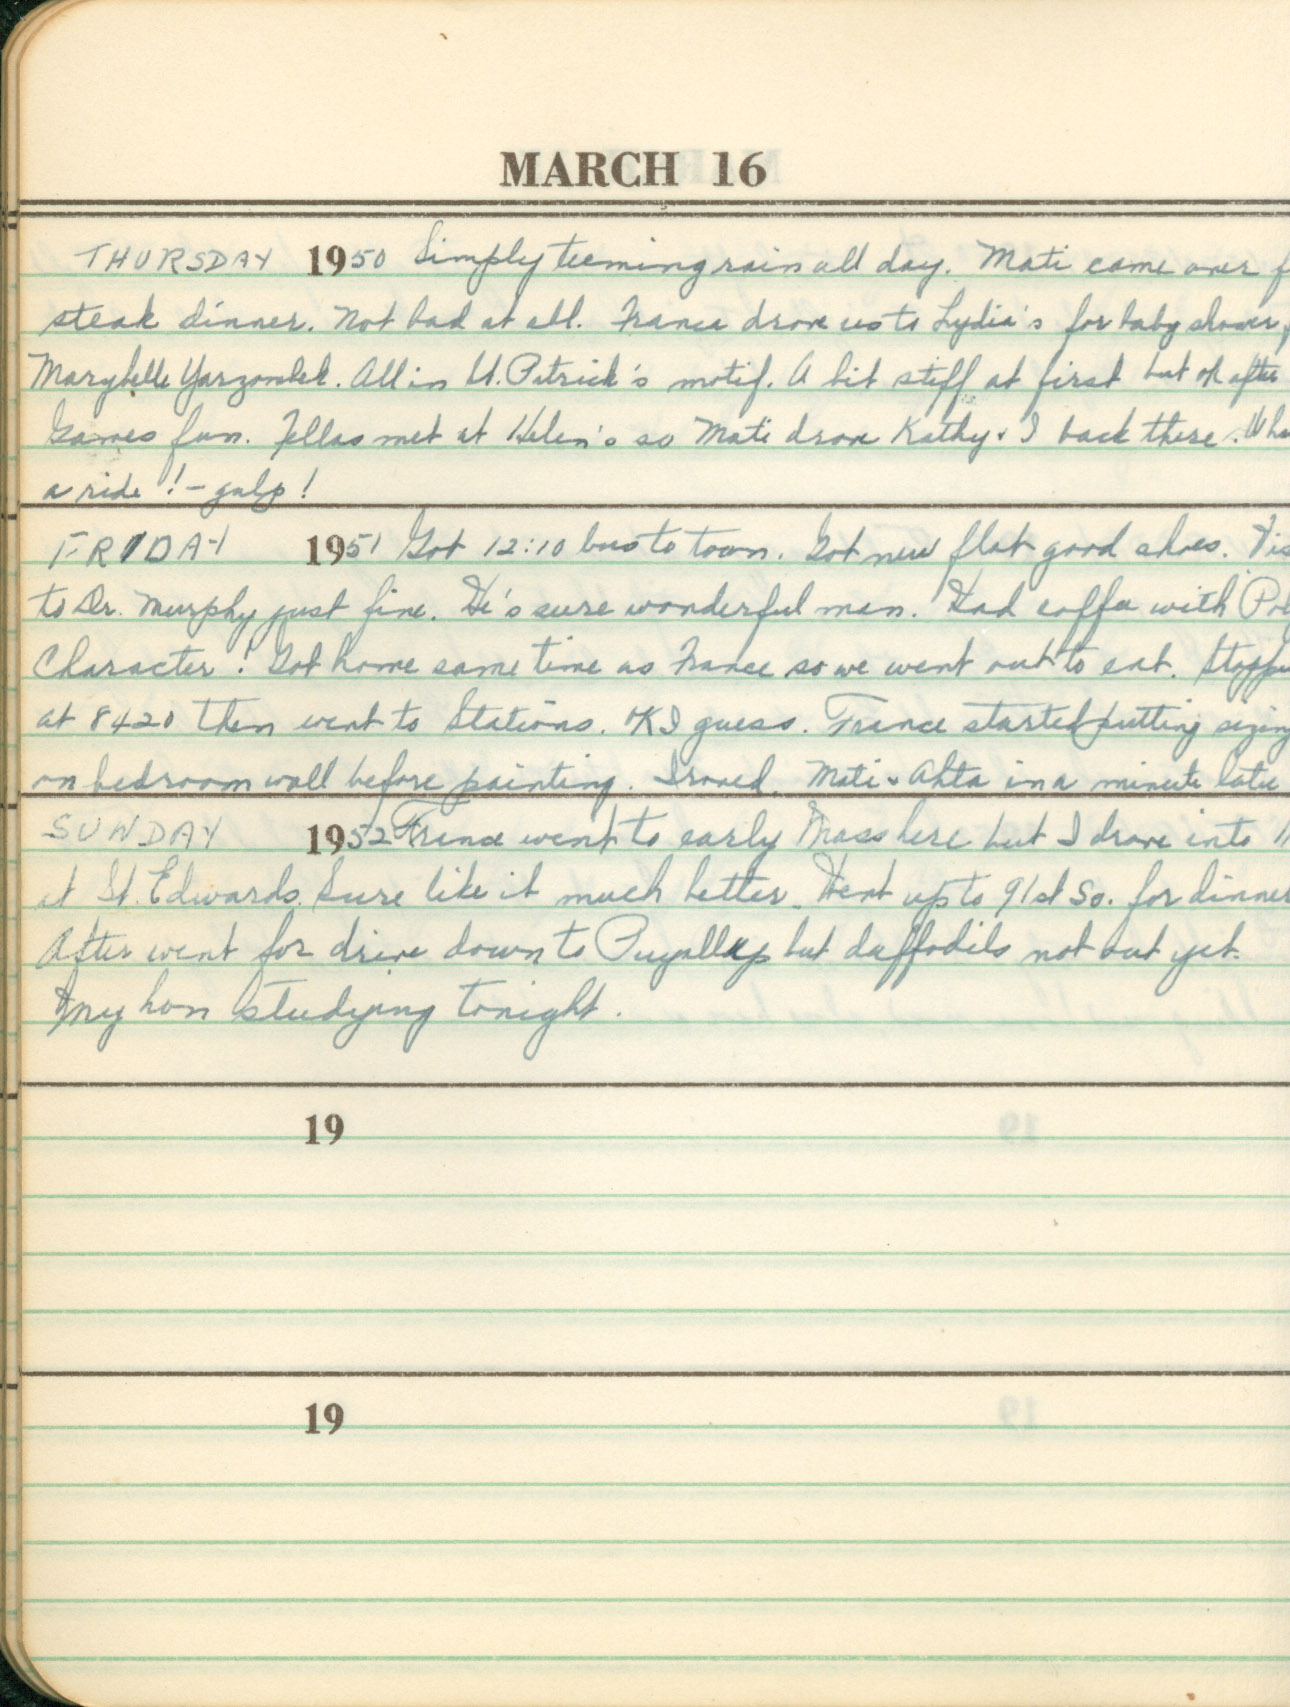 MARCH 16
THURSDAY 1950 Simply teeming rain all day. Mati came over f
steak dinner. Not bad at all. France drove us to Lydia's for baby shower,
Marybelle All in St. Patrick's motif. A bit stiff at first but ok after
Games fun. Fellas met at Helen's so Mati drove Kathy & I back there. Wha
a ride!! - gulp!
FRIDAY 1951 Got 12:10 bus to town. Got new flat good shoes. Vis
to Dr. Murphy just fine. He's sure wonderful man. Had coffee with
Character! Got home same time as France so we went out to eat. Stoppe
at 8420 then went to Stations. OK I guess. France started putting sizing
on bedroom wall before painting. Ironed. Mati & Ahta in a minute late
SUNDAY 1952 France went to early Mass here but I drove into 11
at St. Edwards. Sure like it much better. Went up to 91st So. for dinner
After went for drive down to Puyallup but daffodils not out yet.
My hon studying tonight.
19
19